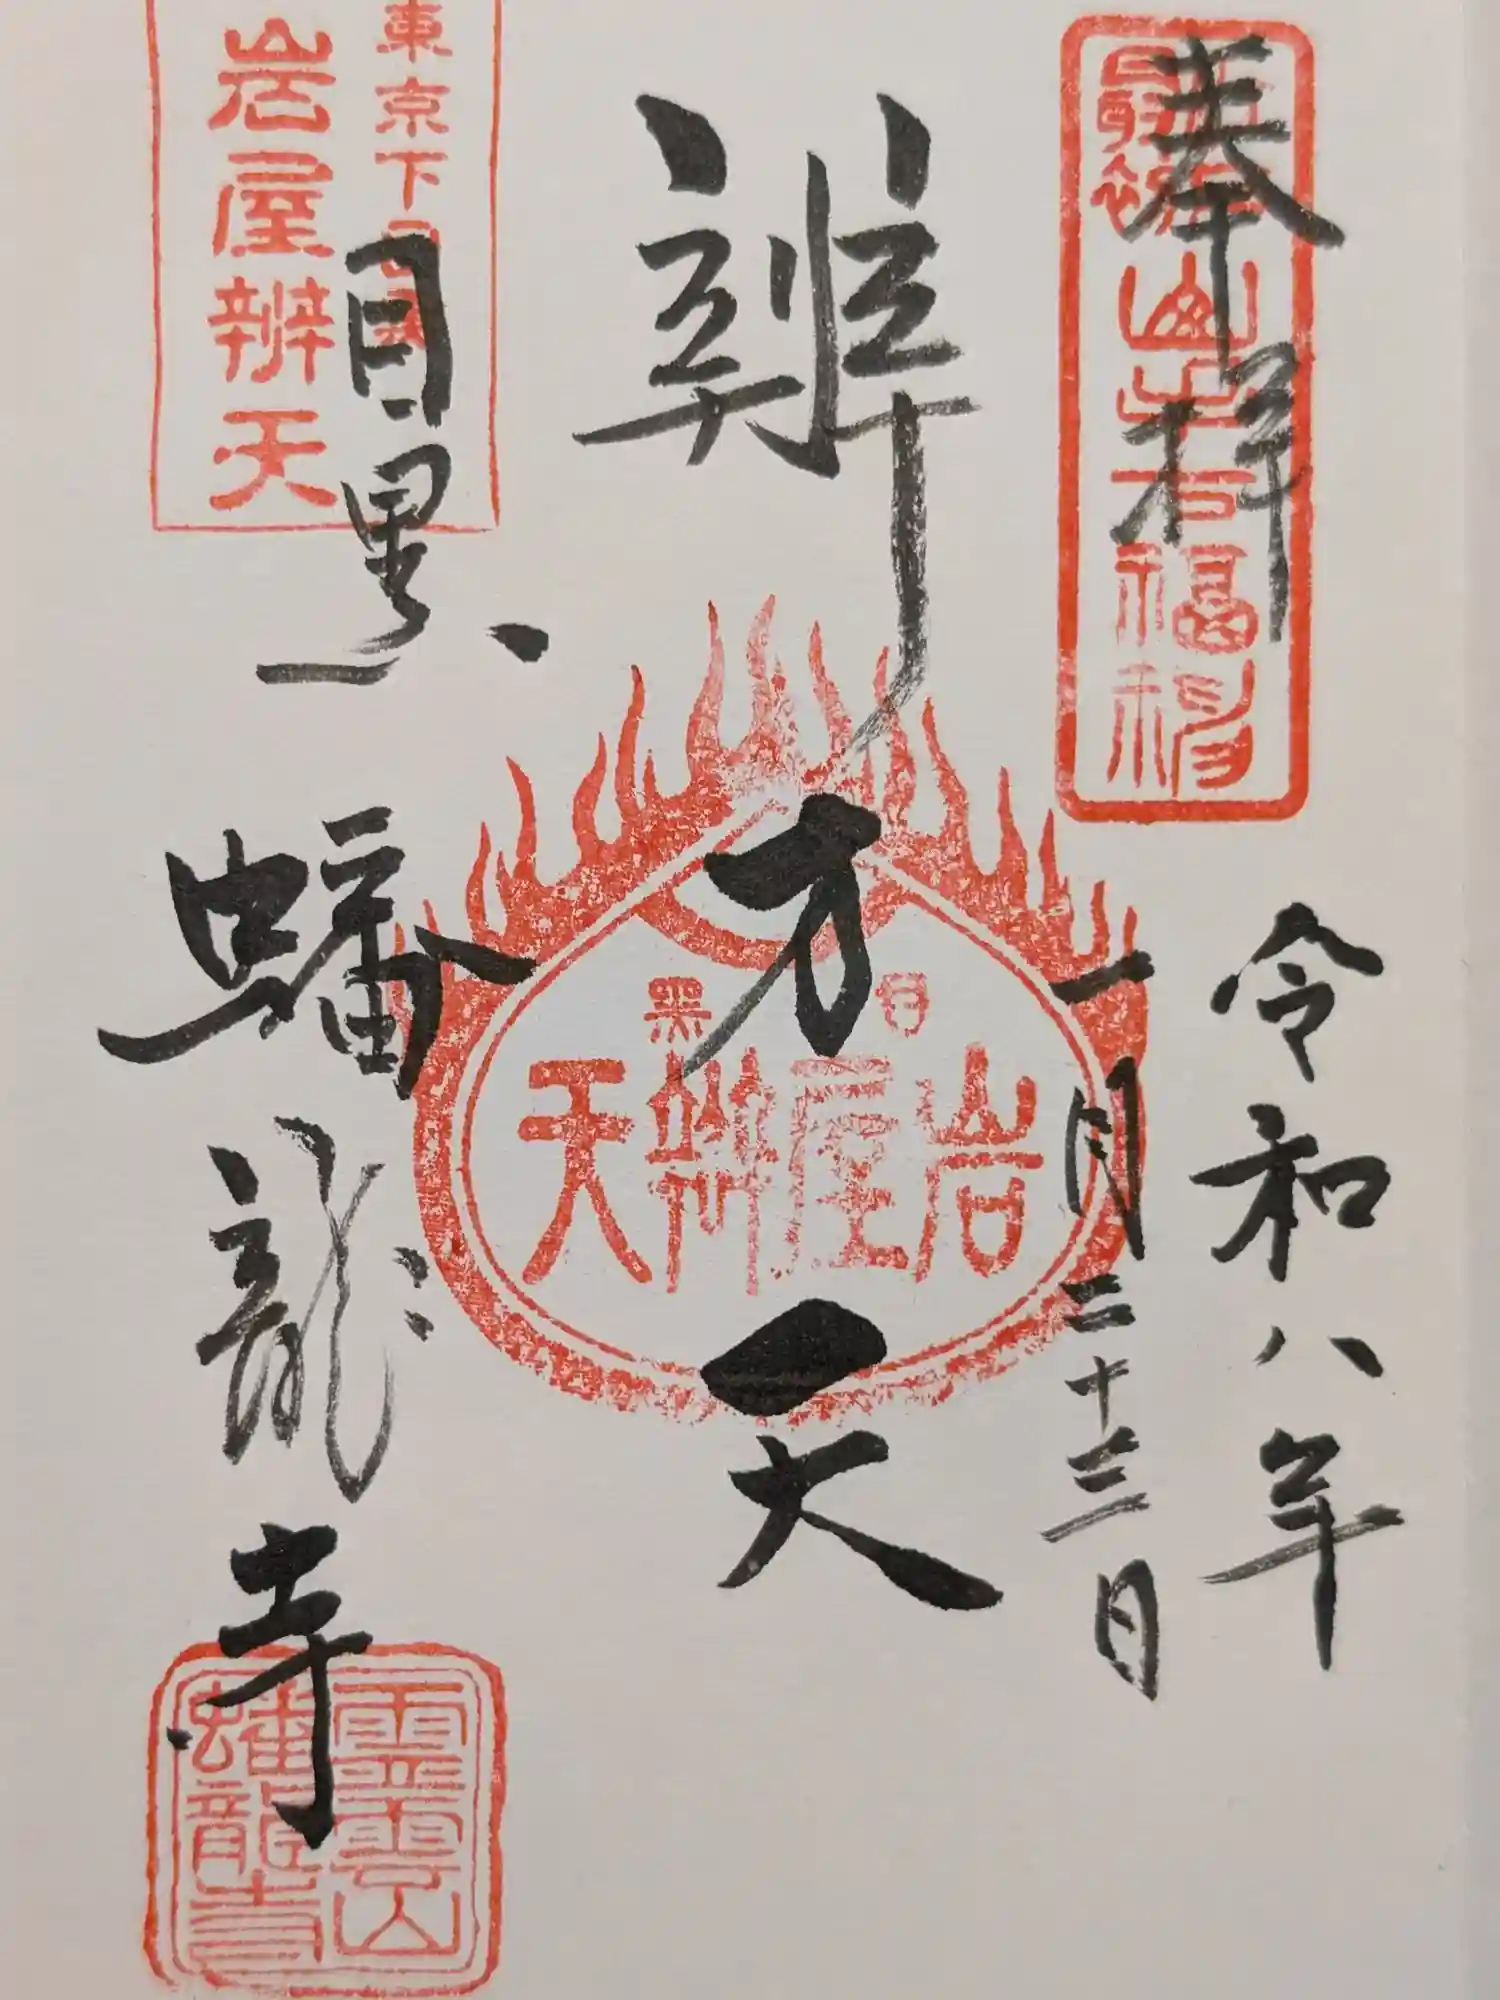 奉拝
令和八年
一月二十三日
辨才天
目黒
岩屋辨天
東京下目黒
岩屋辨天
目黒
蟠龍寺
霊雲山
蟠龍寺